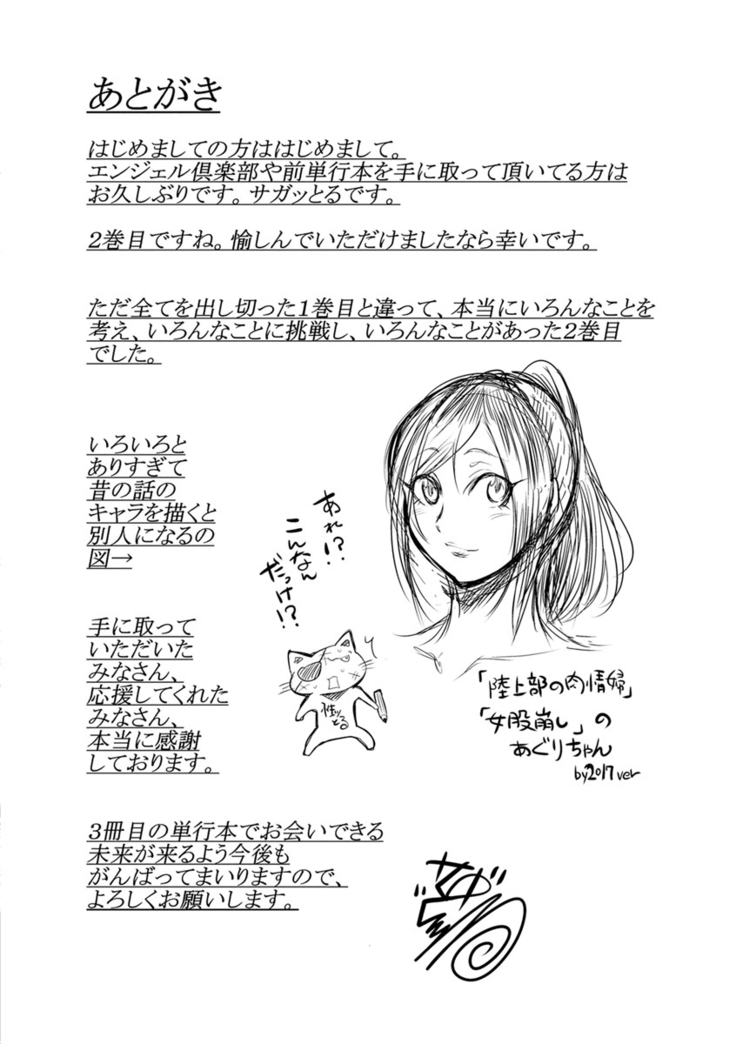 あとがき
はじめましての方ははじめまして。
エンジェル倶楽部や前単行本を手に取って頂いてる方は
お久しぶりです。サガッとるです。
2巻目ですね。愉しんでいただけましたなら幸いです。
ただ全てを出し切った1巻目と違って、本当にいろんなことを
考え、いろんなことに挑戦し、いろんなことがあった2巻目
でした。
いろいろと
ありすぎて
昔の話の
キャラを描くと
別人になるの
図→
あれ!?
こんなん
だっけ!?
性ッ
とる
「陸上部の肉情婦」
「女股崩し」の
あぐりちゃん
by2017ver
手に取って
いただいた
みなさん、
応援してくれた
みなさん、
本当に感謝
しております。
3冊目の単行本でお会いできる
未来が来るよう今後も
がんばってまいりますので、
よろしくお願いします。